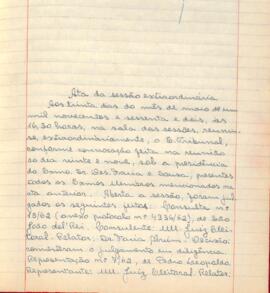 Ata da sessão extraordinária
Aos trinta dias do mês de maio de um
mil novecentos e sessenta e dois, às
16,30 horas, na sala das sessões, reuniu-
se, extraordinariamente, o E. Tribunal,
conforme convocação feita na reunião
do dia vinte e nove, sob a presidência
do Exmo. Sr. Des. Faria e Sousa, presentes
todos os Exmos. Membros mencionados na
ata anterior. Aberta a sessão, foram jul-
gados os seguintes feitos: Consulta nº
/62 (anexo protocolo nº 4334/62), de São
João del Rei. Consulente: MM. Juiz Elei-
toral. Relator: Dr. Decisão:
converteram o julgamento em diligência.
Representação nº /62, de Pedro Leopoldo.
Representante: MM. Juiz Eleitoral. Relator: